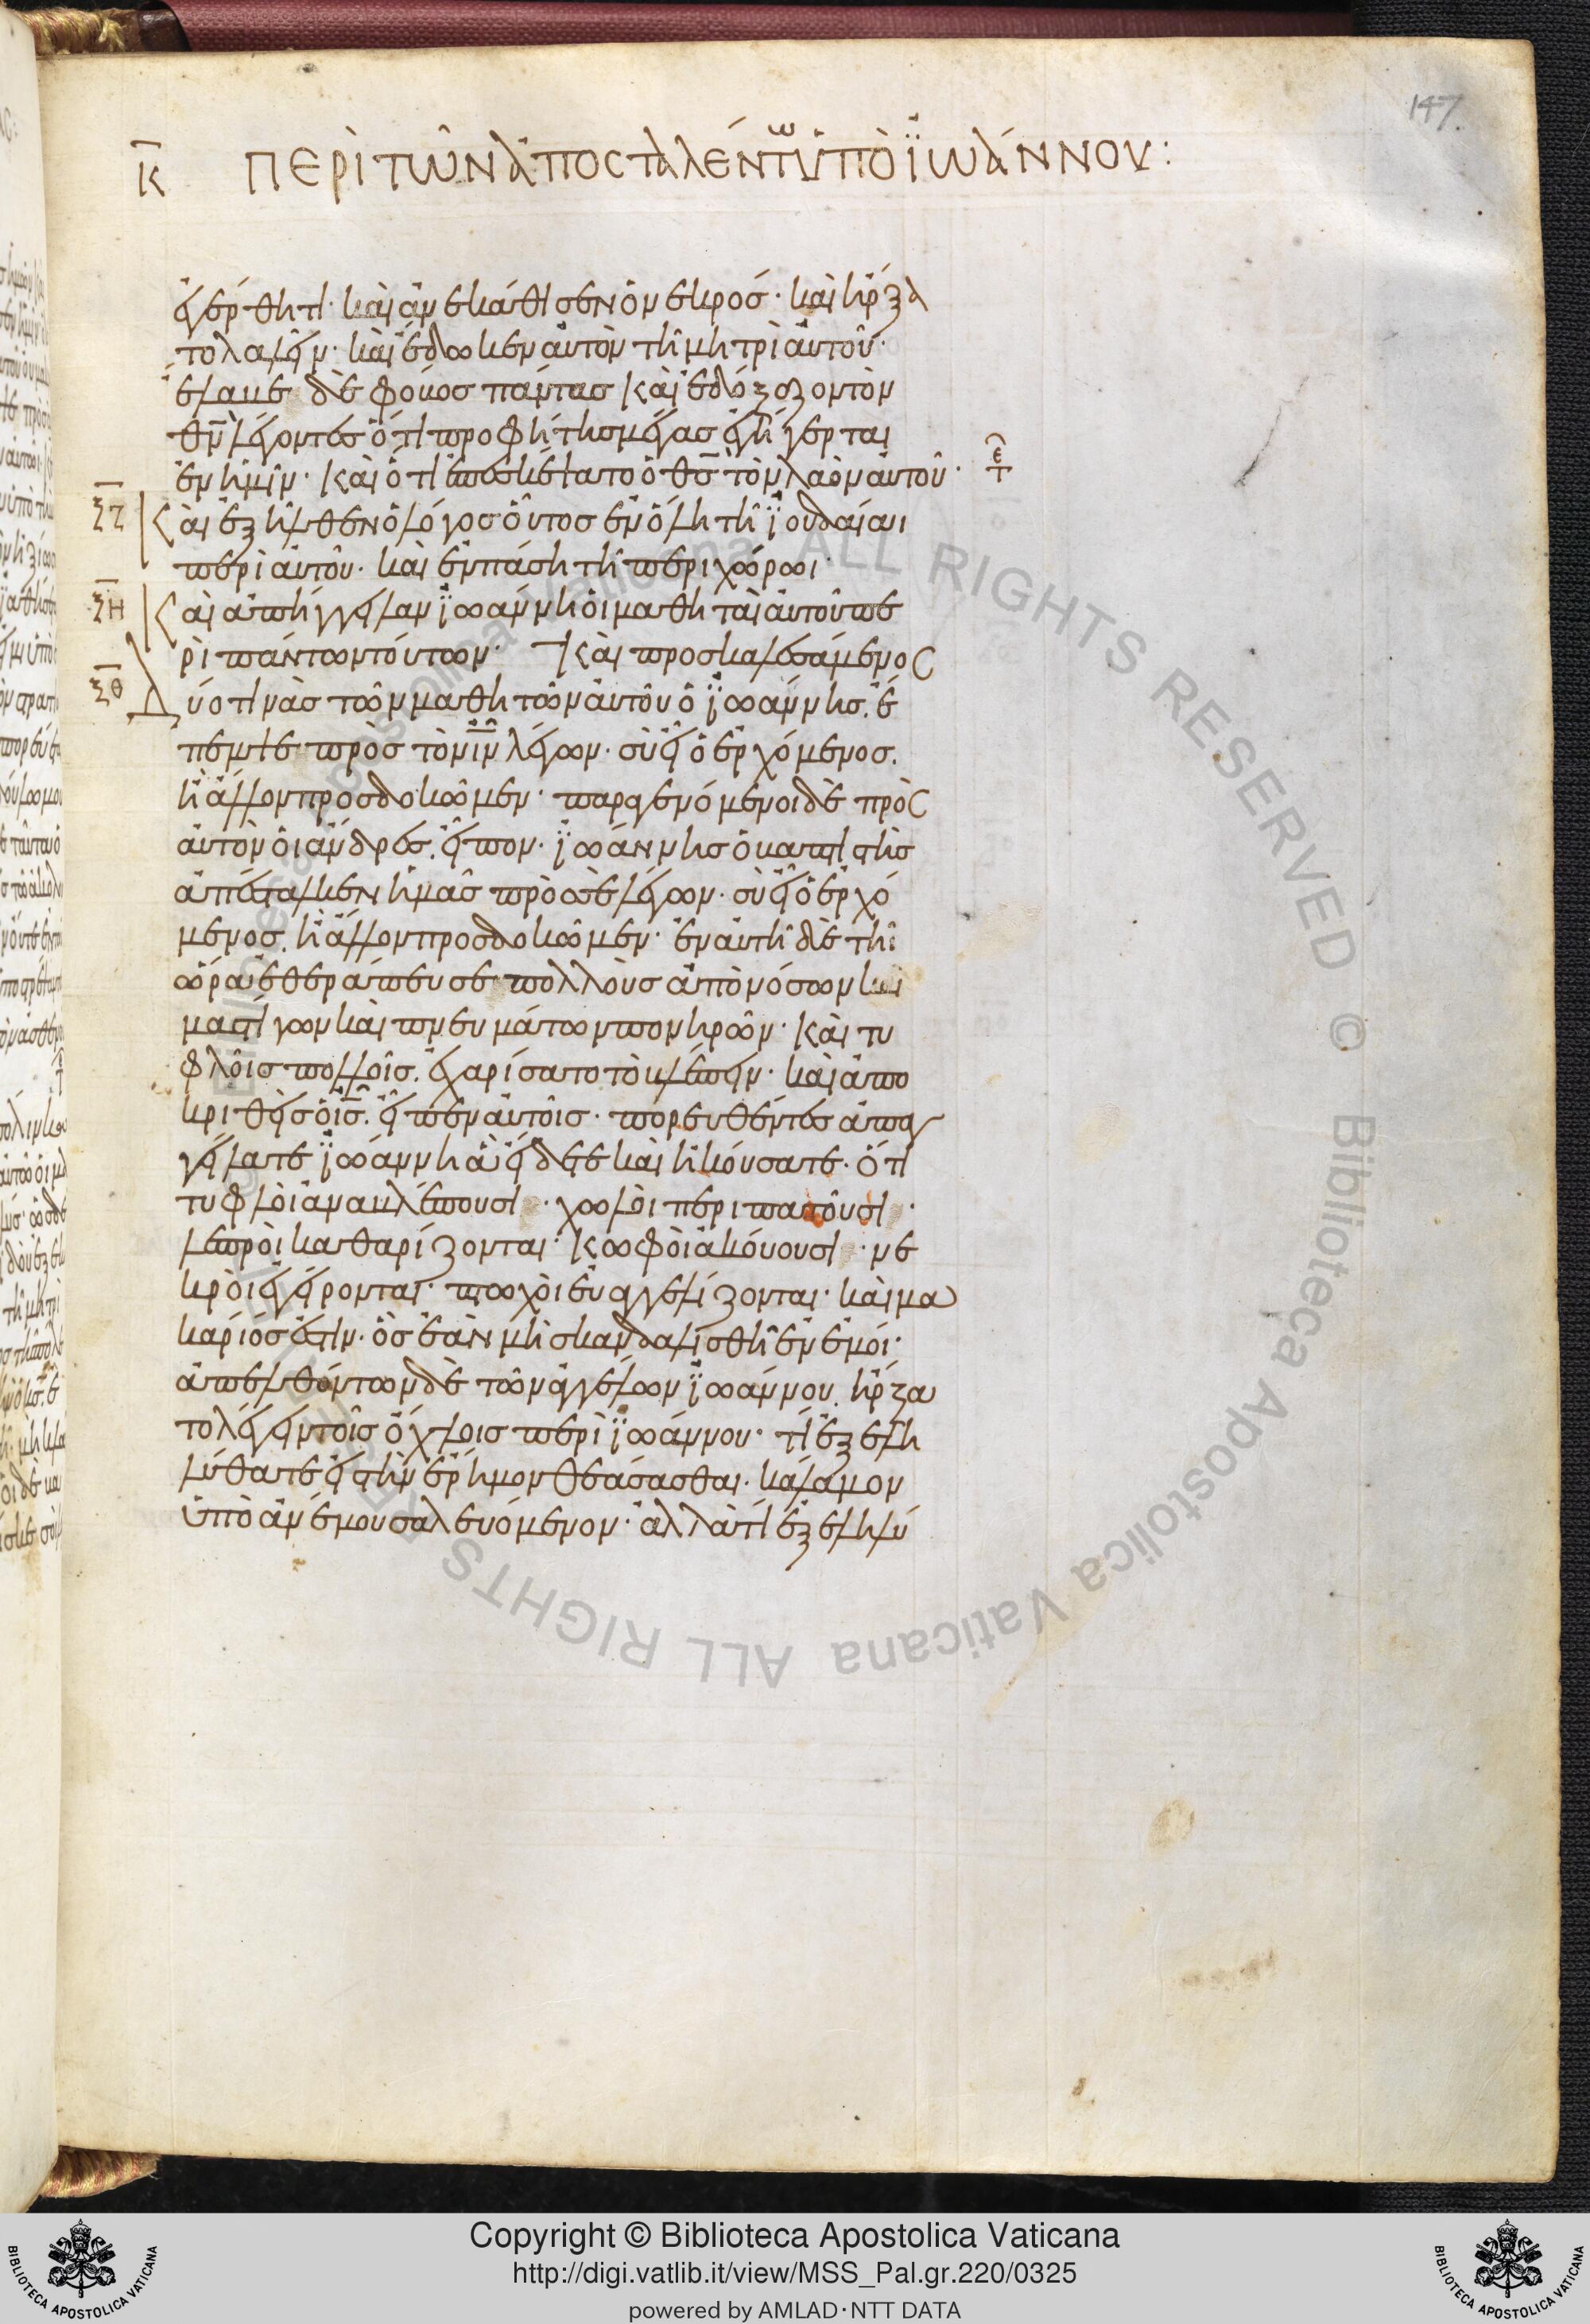 147.
κ̅ ΠΕΡῚ ΤΩ͂Ν ἈΠΟΣΤΑΛΈΝΤΩ ὙΠῸ ΪΩΆΝΝΟΥ:
ἐγέρθητι· καὶ ἀνεκάθισεν ὁ νεκρός· καὶ ἤρξα
το λαλεῖν· καὶ ἔδωκεν αὐτὸν τῆ μητρὶ αὐτοῦ·
ἔλαβε δὲ φόβος πάντας καὶ ἐδόξαζον τὸν
θ̅ν̅ λέγοντες ὅτι προφήτης μέγας ἐγήγερται
ἐν ἡμῖν· καὶ ὅτι ἐπεσκέψατο ὁ θ̅ς̅ τὸν λαὸν αὐτοῦ·
ξ̅ζ̅ Καὶ ἐξῆλθεν ὁ λόγος οὗτος ἐν ὅλη τῆ ϊουδαίαι
περὶ αὐτοῦ· καὶ ἐν πάση τῆ περιχώρωι·
ξ̅η̅ Καὶ ἀπήγγειλαν ϊωάννη οἱ μαθηταὶ αὐτοῦ πε
ρὶ πάντων τούτων· Καὶ προσκαλεσάμενος
ξ̅θ̅ Δύο τινὰς τῶν μαθητῶν αὐτοῦ ὁ ϊωάννης. ἔ
πεμψε πρὸς τὸν ι̅ν̅ λέγων· σὺ εἶ ὁ ἐρχόμενος.
ἢ ἄλλον προσδοκῶμεν· παραγενόμενοι δὲ πρὸς
αὐτὸν οἱ ἄνδρες. εἶπον· ϊωάννης ὁ βαπτιστὴς
ἀπέσταλκεν ἡμᾶς πρὸς σὲ λέγων· σὺ εἶ ὁ ἐρχό
μενος. ἢ ἄλλον προσδοκῶμεν· ἐν αὐτῆ δὲ τῆ
ὥρα ἐθεράπευσε πολλοὺς ἀπὸ νόσων καὶ
μαστίγων καὶ πνευμάτων πονηρῶν· καὶ τυ
φλοῖς πολλοῖς. ἐχαρίσατο τὸ βλέπειν· καὶ ἀπο
κριθεὶς ὁ ι̅ς̅. εἶπεν αὐτοῖς· πορευθέντες ἀπαγ
γείλατε ϊωάννη ἃ εἴδετε καὶ ἠκούσατε· ὅτι
τυφλοὶ ἀναβλέπουσι· χωλοὶ περιπατοῦσι·
λεπροὶ καθαρίζονται· κωφοὶ ἀκούουσι· νε
κροὶ ἐγείρονται· πτωχοὶ εὐαγγελίζονται· καὶ μα
κάριός ἐστιν· ὃς ἐὰν μὴ σκανδαλισθῆ ἐν ἐμοί·
ἀπελθόντων δὲ τῶν ἀγγέλων ϊωάννου. ἤρξα
το λέγειν τοῖς ὄχλοις περὶ ϊωάννου· τί ἐξελη
λύθατε εἰς τὴν ἔρημον θεάσασθαι. κάλαμον
ὑπὸ ἀνέμου σαλευόμενον· ἀλλὰ τί ἐξεληλύ
Copyright © Biblioteca Apostolica Vaticana
http://digi.vatlib.it/view/MSS_Pal.gr.220/0325
powered by AMLAD·NTT DATA
BIBLIOTECA APOSTOLICA VATICANA
BIBLIOTECA APOSTOLICA VATICANA